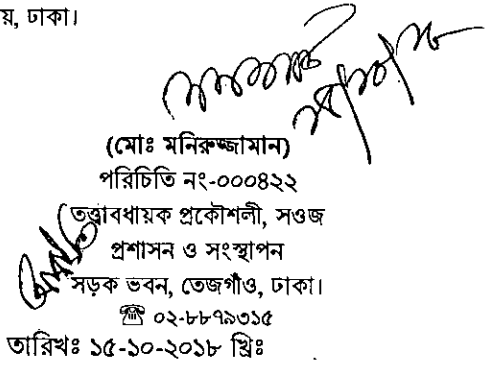 য়, ঢাকা।
(মোঃ মনিরুজ্জামান)
পরিচিতি নং-০০০৪২২
তত্ত্বাবধায়ক প্রকৌশলী, সওজ
প্রশাসন ও সংস্থাপন
সড়ক ভবন, তেজগাঁও, ঢাকা।
☎ ০২-৮৮৭৯৩১৫
তারিখঃ ১৫-১০-২০১৮ খ্রিঃ